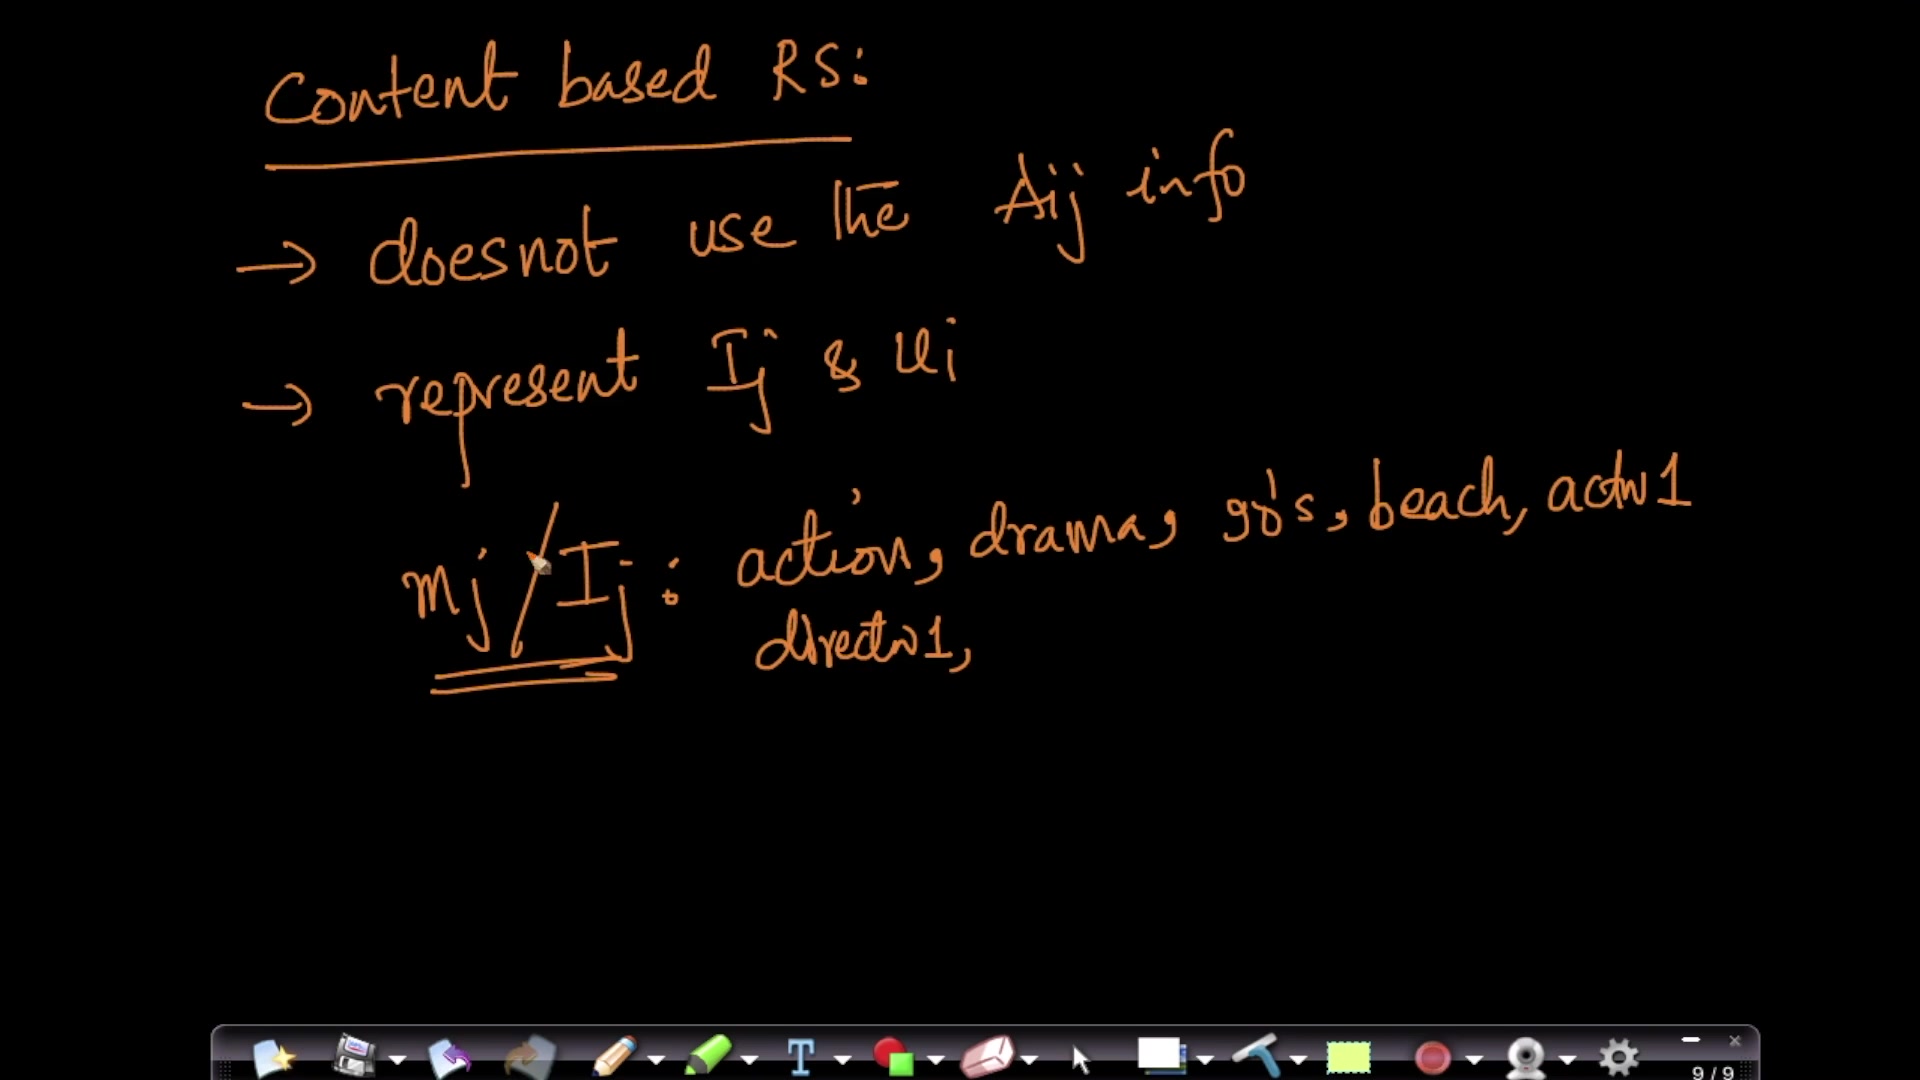 Content based RS:
→ doesnot use the Aij info
→ represent Ij & Ui
mj / Ij : action, drama, 90's, beach, actor1
director1,
9 / 9